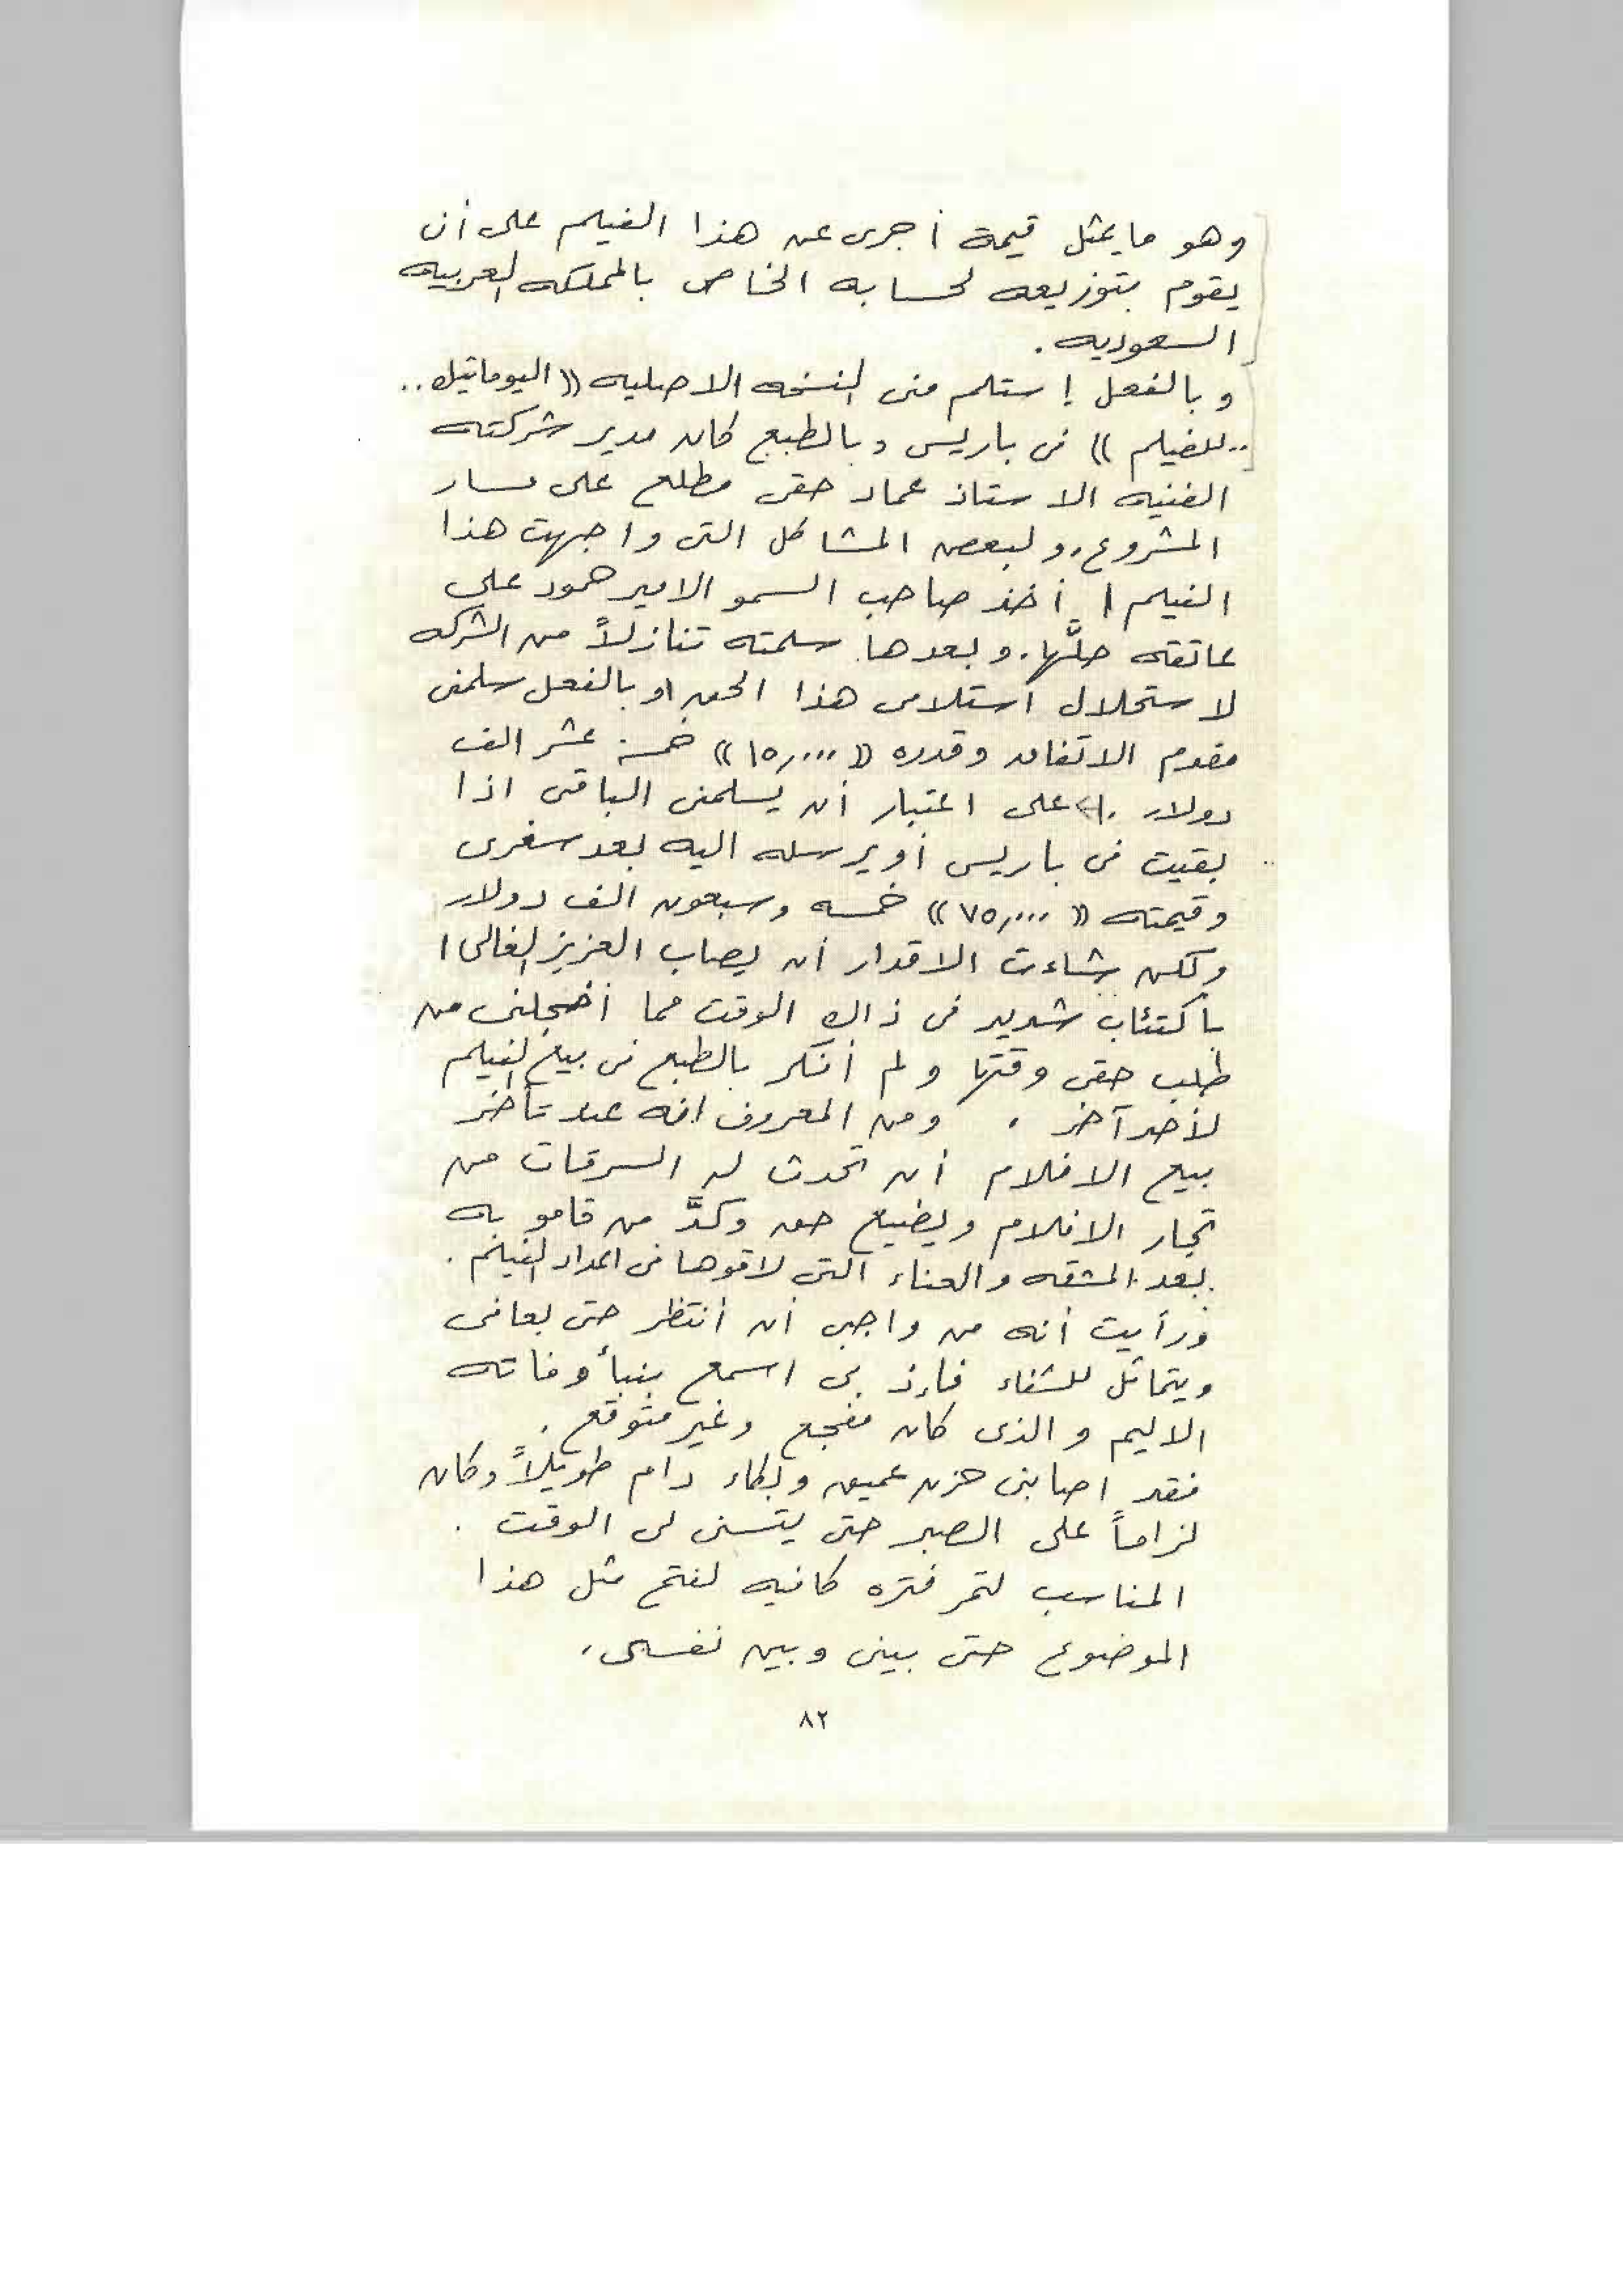 وهو ما يمثل قيمة أجرى عن هذا الفيلم على أن
يقوم بتوزيعه لحسابه الخاص بالمملكه العربيه
السعوديه .
وبالفعل إستلم منى النسخه الاصليه (( اليوماتيك ..
.. للفيلم )) فى باريس وبالطبع كان مدير شركته
الفنيه الاستاذ عماد حقى مطلع على مسار
المشروع، ولبعض المشاكل التى واجهت هذا
الفيلم أخذ صاحب السمو الامير حمود على
عاتقه حلَّها. وبعدها سلمته تنازلاً من الشركه
لاستحلال استلامى هذا الحق وبالفعل سلمنى
مقدم الاتفاق وقدره (( ١٥,٠٠٠ )) خمسة عشر الف
دولار على اعتبار أن يسلمنى الباقى اذا
بقيت فى باريس أو يرسله اليه بعد سفرى
وقيمته (( ٧٥,٠٠٠ )) خمسه وسبعون الف دولار
ولكن شاءت الاقدار أن يصاب العزيز الغالى
باكتئاب شديد فى ذاك الوقت مما أخجلنى من
طلب حقى وقتها ولم أفكر بالطبع فى بيع الفيلم
لأحد آخر . ومن المعروف انه عند تأخر
بيع الافلام أن تحدث له السرقات من
تجار الافلام ويضيع حق وكدَّ من قامو به
بعد المشقه والعناء التى لاقوها فى اعداد الفيلم .
ورأيت أنه من واجبى أن أنتظر حتى يعافى
ويتماثل للشفاء فإذ بى اسمع بنبأ وفاته
الاليم والذى كان مفجع وغير متوقع .
فقد اصابنى حزن عميق وبكاء دام طويلاً وكان
لزاماً على الصبر حتى يتسنى لى الوقت .
المناسب لتمر فتره كافيه لفتح مثل هذا
الموضوع حتى بينى وبين نفسى .
٨٢